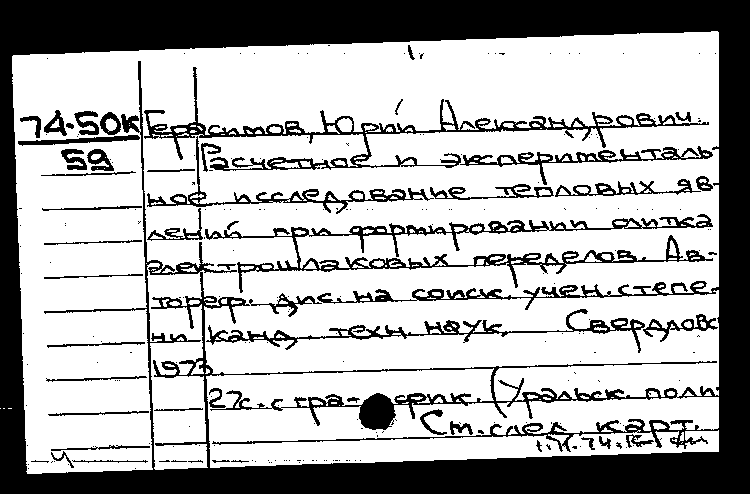 1.
74-50к Герасимов, Юрий Александрович.
59 Расчетное и эксперименталь-
ное исследование тепловых яв-
лений при формировании слитка
электрошлаковых переделов. Ав-
тореф. дис. на соиск. учен. степе-
ни канд. техн. наук. Свердловс
1973.
27с. с гра- фик. (Уральск. поли-
См. след. карт.
ч